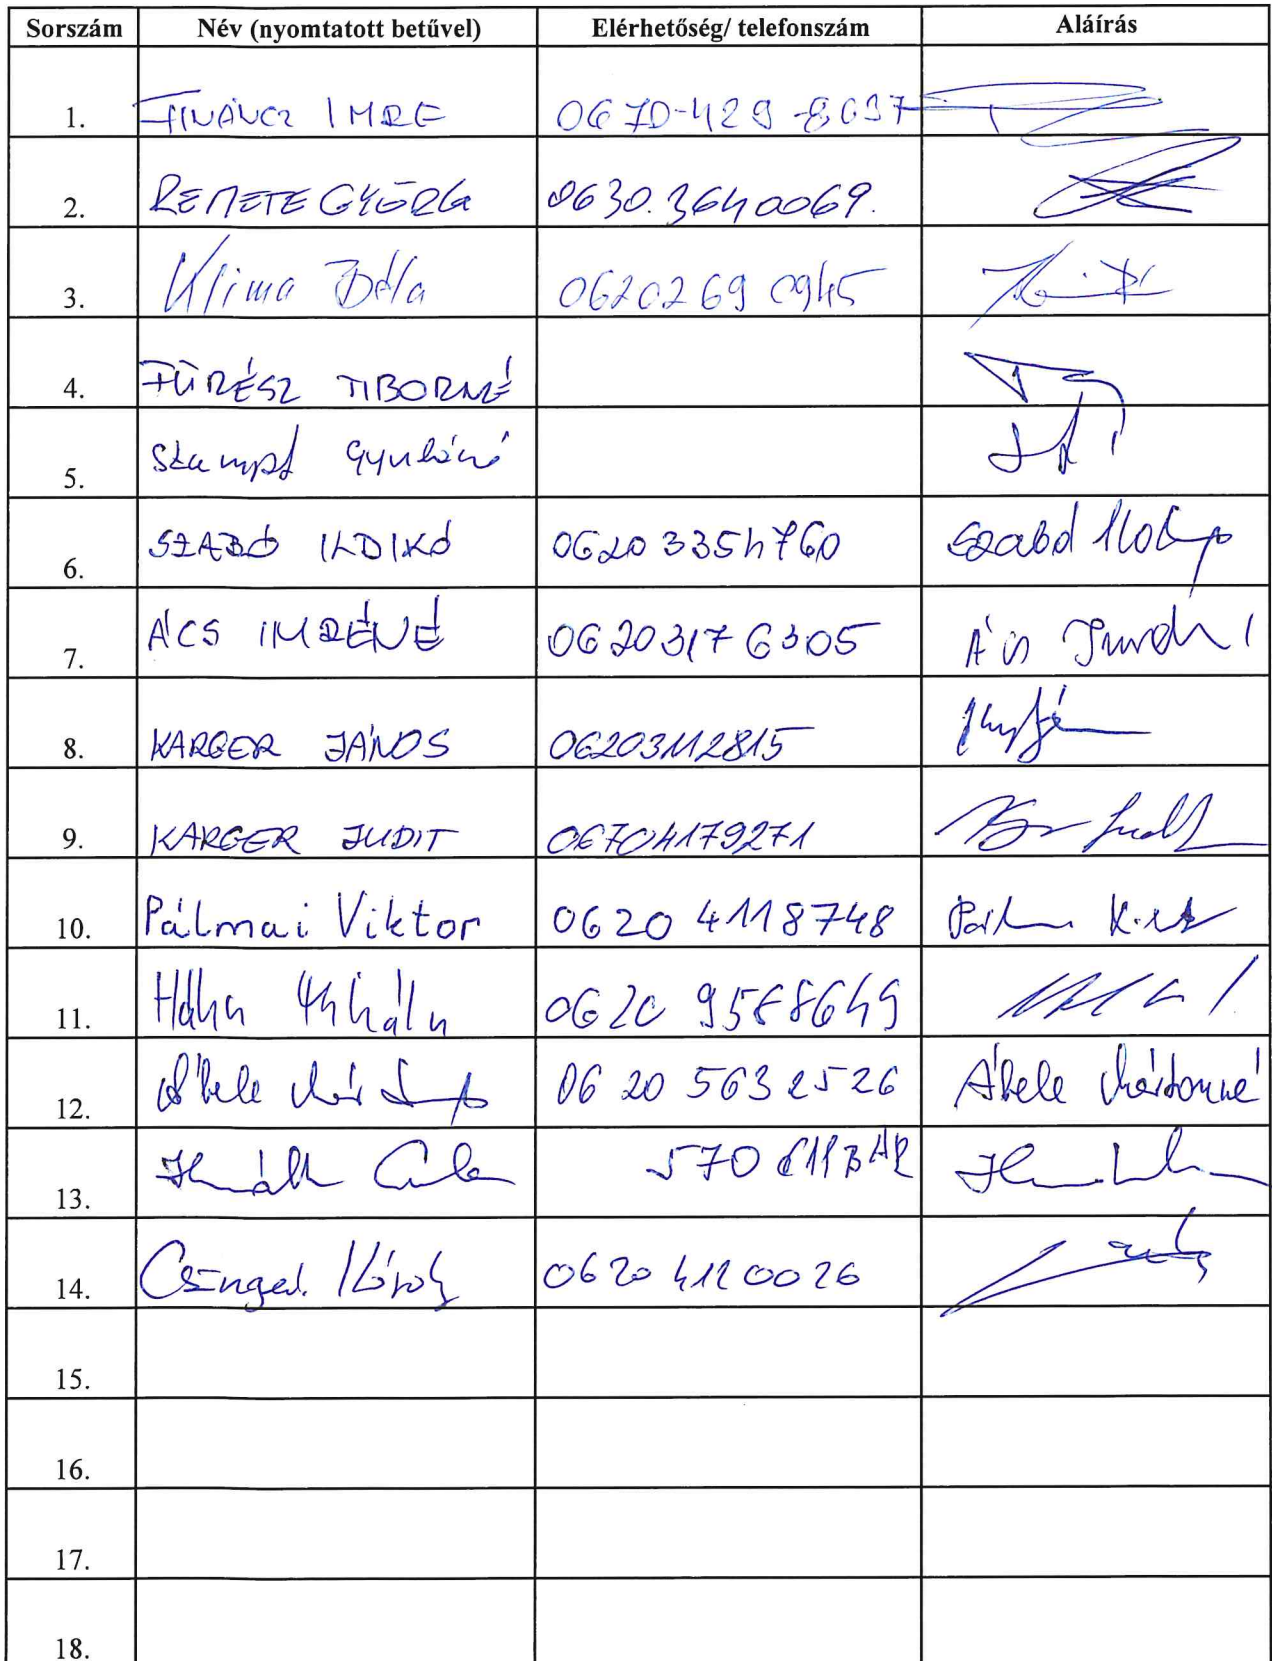 Sorszám Név (nyomtatott betűvel) Elérhetőség/ telefonszám Aláírás
1. FINÁNCZ IMRE 0670-429-8637
2. REMETE GYÖRGY 0630.3640069.
3. Klima Béla 06202690945
4. FŰRÉSZ TIBORNÉ
5. Stampf Gyuláné
6. SZABÓ ILDIKÓ 06203354760 Szabó Ildikó
7. ÁCS IMRÉNÉ 06203176305 Ács Imréné
8. KARGER JÁNOS 06203112815
9. KARGER JUDIT 06704179271
10. Pálmai Viktor 0620 4118748
11. Hahn Mihály 0620 9588649
12. Ábele 06 20 563 2526 Ábele Mártonné
13.
14. Károly 0620 4120026
15.
16.
17.
18.